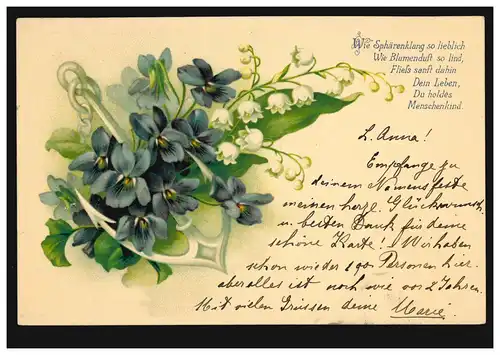 Wie Sphärenklang so lieblich
Wie Blumenduft so lind,
Fliess sanft dahin
Dein Leben,
Du holdes
Menschenkind.
L. Anna!
Empfange zu
deinem Namensfeste
meinen herzl. Glückwunsch
u. besten Dank für deine
schöne Karte! Wir haben
schon wieder 190 Personen hier.
aber alles ist noch wie vor 2 Jahren.
Mit vielen Grüssen deine Marie.